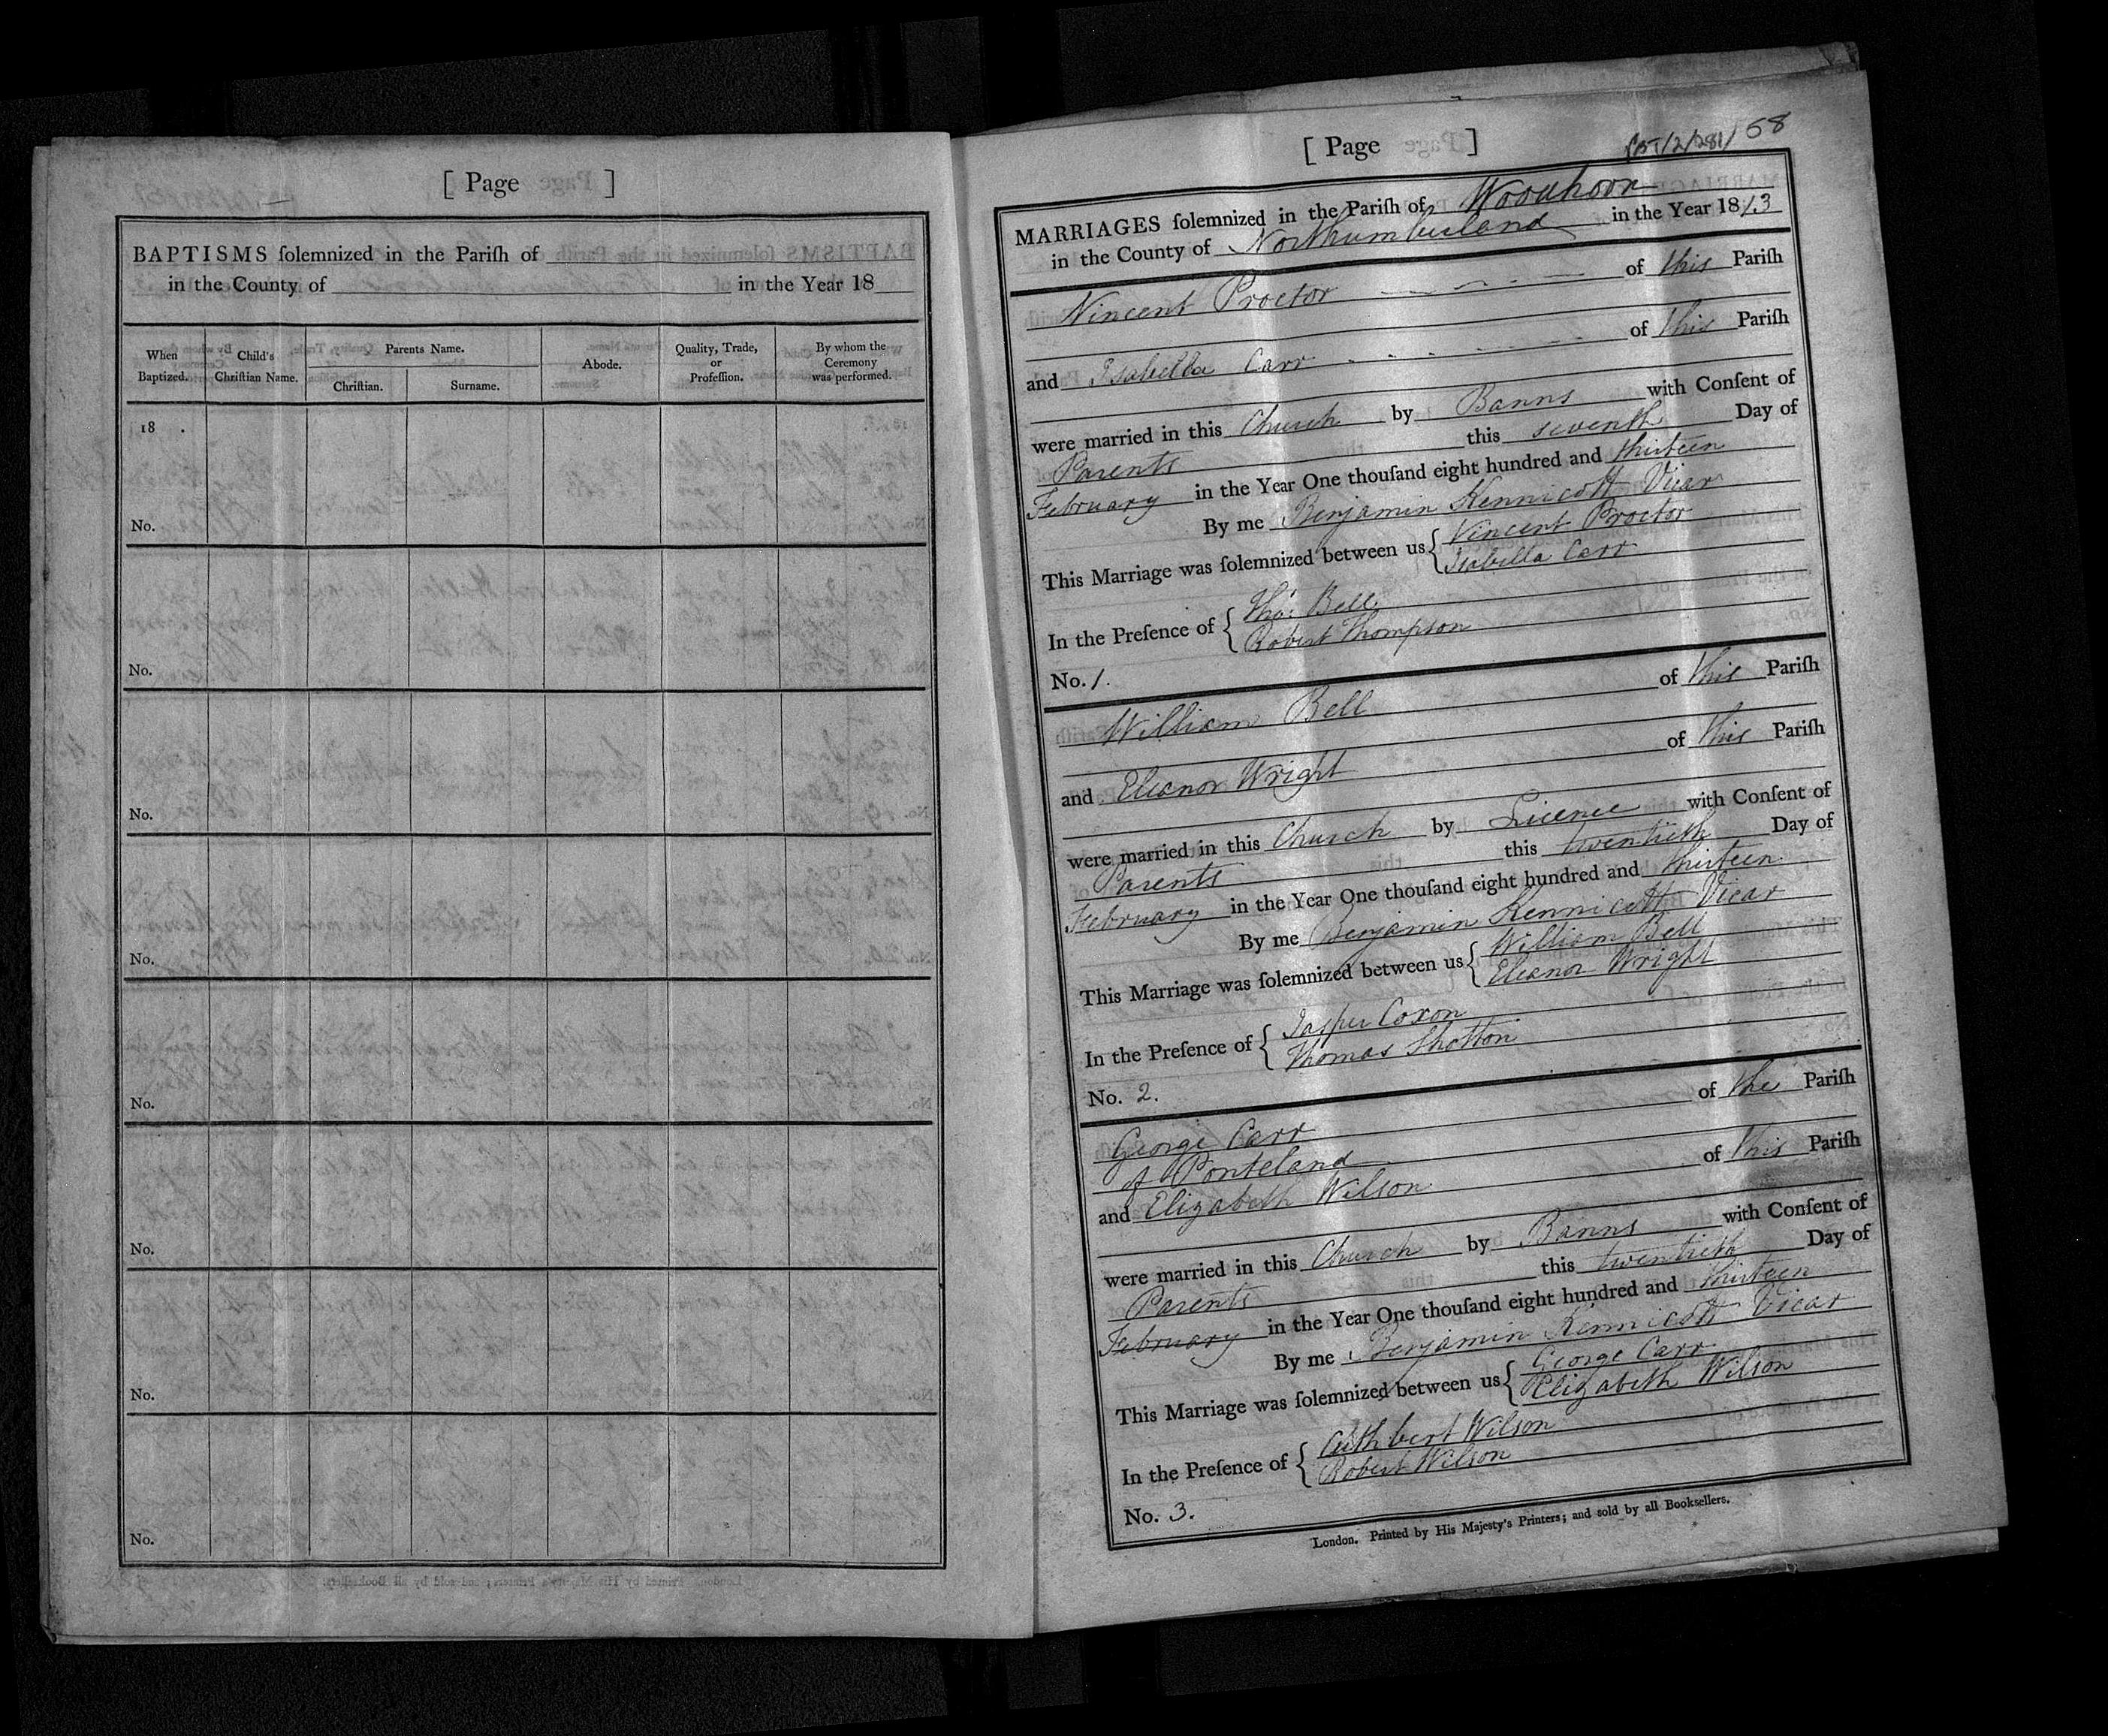 [ Page ]
BAPTISMS ſolemnized in the Pariſh of
in the County of in the Year 18
When Baptized.
Child's Chriſtian Name.
Parents Name.
Chriſtian.
Surname.
Abode.
Quality, Trade, or Profeſſion.
By whom the Ceremony was performed.
18 .
No.
No.
No.
No.
No.
No.
No.
No.
[ Page ]
58
MARRIAGES ſolemnized in the Pariſh of Woodhorn
in the County of Northumberland in the Year 1813
Vincent Proctor of this Pariſh
and Isabella Carr of this Pariſh
were married in this Church by Banns with Conſent of
Parents this seventh Day of
February in the Year One thouſand eight hundred and thirteen
By me Benjamin Kennicott Vicar
This Marriage was ſolemnized between us { Vincent Proctor
Isabella Carr
In the Preſence of { Thos. Bell
Robert Thompson
No. 1.
William Bell of this Pariſh
and Eleanor Wright of this Pariſh
were married in this Church by Licence with Conſent of
Parents this twentieth Day of
February in the Year One thouſand eight hundred and thirteen
By me Benjamin Kennicott Vicar
This Marriage was ſolemnized between us { William Bell
Eleanor Wright
In the Preſence of { Jasper Coxon
Thomas Shotton
No. 2.
George Carr of the Pariſh
of Ponteland
and Elizabeth Wilson of this Pariſh
were married in this Church by Banns with Conſent of
Parents this twentieth Day of
February in the Year One thouſand eight hundred and thirteen
By me Benjamin Kennicott Vicar
This Marriage was ſolemnized between us { George Carr
Elizabeth Wilson
In the Preſence of { Cuthbert Wilson
Robert Wilson
No. 3.
London. Printed by His Majesty's Printers; and sold by all Booksellers.